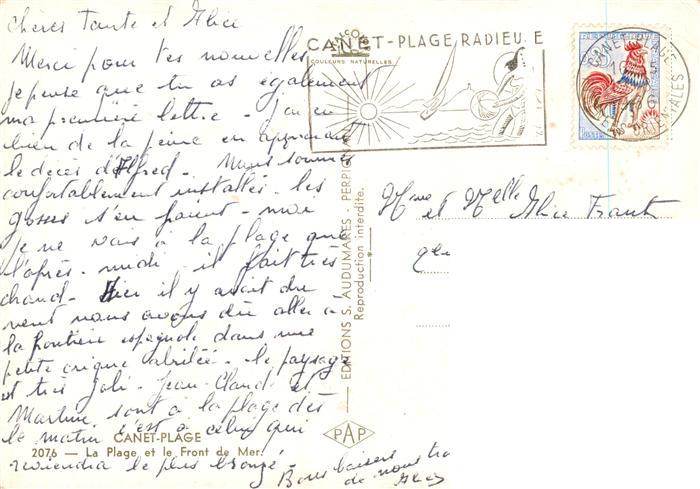 Chères Tante et Alice
Merci pour tes nouvelles
je pense que tu as également
ma première lettre - J'ai eu
bien de la peine en apprenant
le décès d'Alfred. Nous sommes
confortablement installés. les
gosses s'en paient - moi
je ne vais à la plage que
l'après-midi il fait très
chaud - Hier il y avait du
vent nous avons dû aller à
la frontière espagnole dans une
petite crique abritée - le paysage
est très joli - Jean-Claude et
Martine sont à la plage dès
le matin c'est à celui qui
reviendra le plus bronzé -
Bons baisers
de nous
CANET-PLAGE
2076 — La Plage et le Front de Mer.
COULEURS NATURELLES
EDITIONS S. AUDUMARES - PERPIGNAN
Reproduction interdite.
PAP
CANET-PLAGE RADIEUSE
CANET-PLAGE
ORIENTALES
Mme et Melle Alice